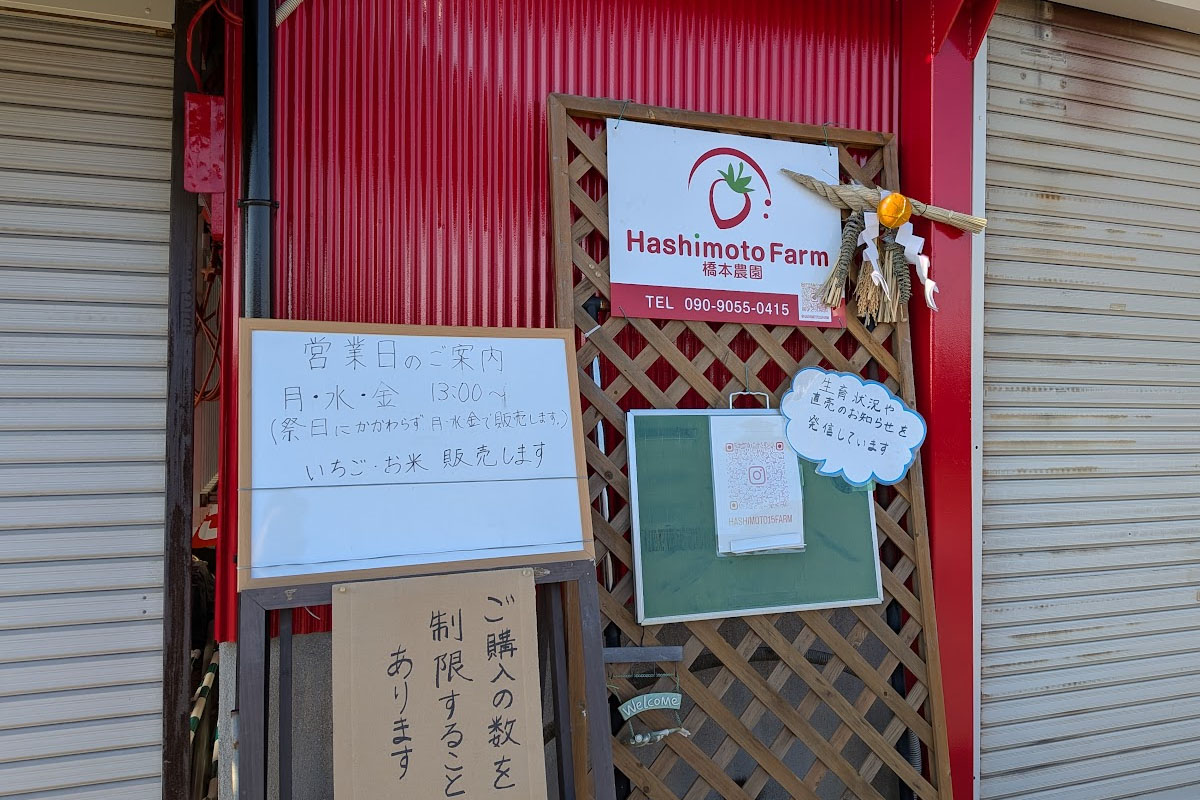 Hashimoto Farm
橋本農園
TEL 090-9055-0415
営業日のご案内
月・水・金 13:00〜
(祭日にかかわらず 月・水・金で販売します。)
いちご・お米 販売します
生育状況や
直売のお知らせを
発信しています
HASHIMOTO15FARM
ご購入の数を
制限すること
あります
Welcome